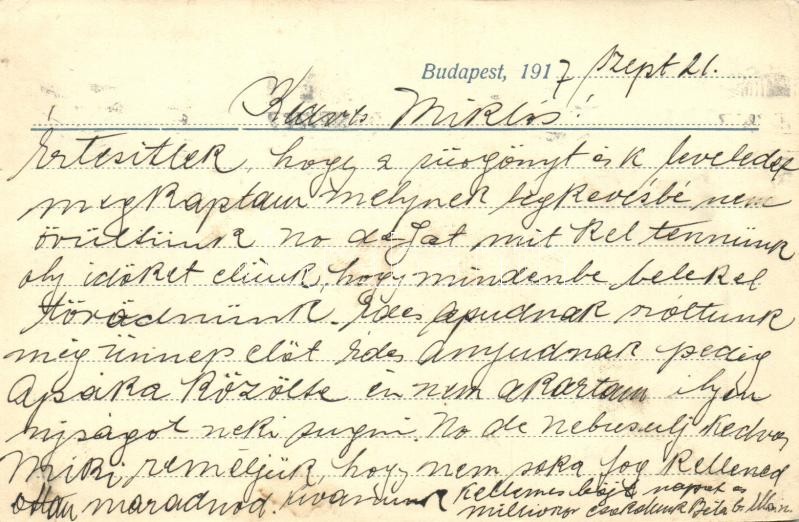 Budapest, 1917 Szept 21.
Kedves Miklós!
Értesitlek, hogy a sürgönyt és k. leveledet
megkaptam melynek legkevésbé nem
örültünk No de hát mit kel tennünk
oly időket élünk, hogy mindenbe belekel
törődnünk. Édes apudnak szóltunk
még ünnep előt Édes anyudnak pedig
Apáka közölte én nem akartam ilyen
ujságot neki sugni. No de nebusulj kedves
Miki, reméljük, hogy nem soka fog kellened
ottan maradnod. kivánunk Kellemes böjt napot és
milliószor csokolunk Béla